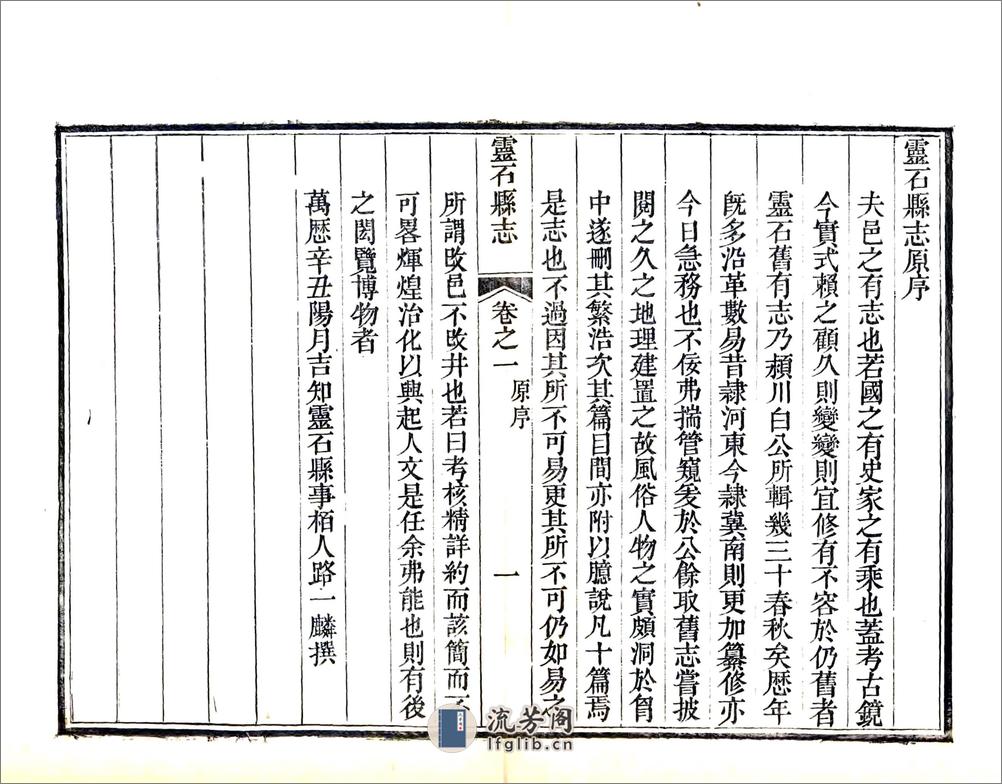 靈石縣志原序
夫邑之有志也若國之有史家之有乘也蓋考古鏡
今實式賴之顧久則變變則宜修有不容於仍舊者
靈石舊有志乃潁川白公所輯幾三十春秋矣歷年
旣多沿革數易昔隷河東今隷冀南則更加纂修亦
今日急務也不佞弗揣管窺爰於公餘取舊志嘗披
閱之久之地理建置之故風俗人物之實頗洞於胷
中遂刪其繁浩次其篇目間亦附以臆說凡十篇焉
是志也不過因其所不可易更其所不可仍如易之
靈石縣志
卷之一
原序
一
所謂改邑不改井也若曰考核精詳約而該簡而不
可畧輝煌治化以興起人文是任余弗能也則有後
之閎覽博物者
萬歷辛丑陽月吉知靈石縣事栢人路一麟撰
流芳阁
lfglib.cn